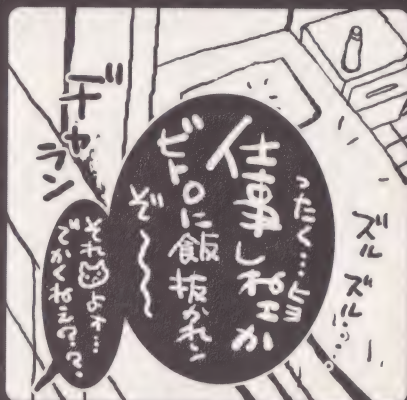 ズル
ズル…
ったく…ヒヨ
仕事しねェか
ビトロに飯抜かれン
ぞ〜〜〜
ヂャラン
それよォ…
でかくねぇ???